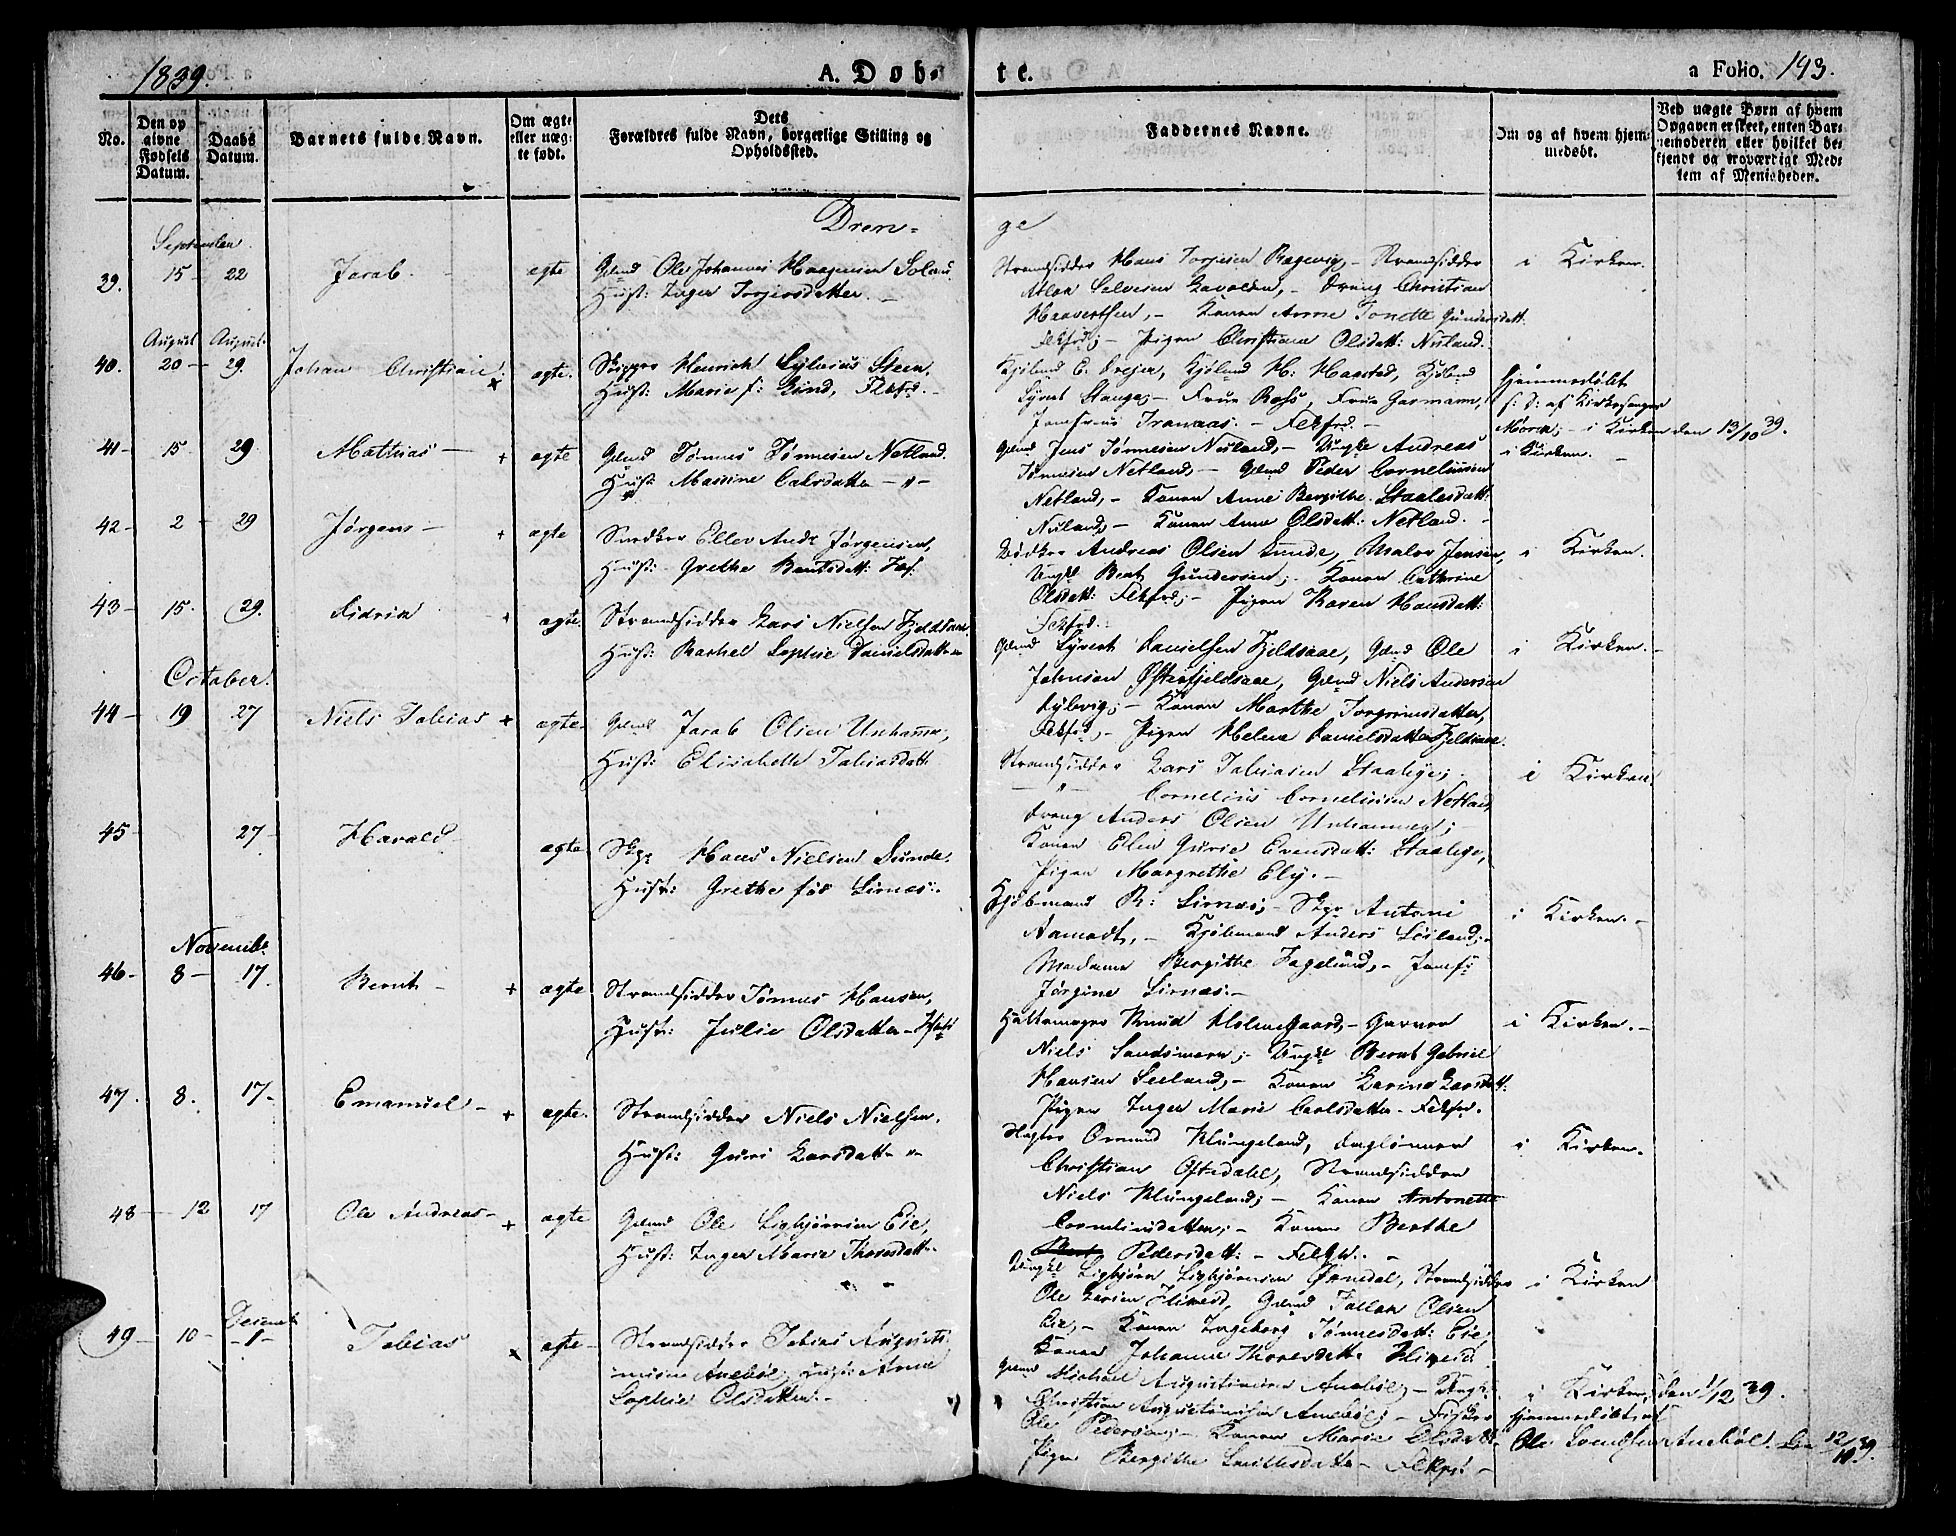 1839.
A. Döb-
te.
a Folio. 193.
No.
Den op
givne
Fødsels
Datum.
Daabs
Datum.
Barnets fulde Navn.
Om ægte
eller uæg-
te født.
Dets
Forældres fulde Navn, borgerlige Stilling og
Opholdssted.
Faddernes Navne.
Om og af hvem hjem-
medøbt.
Ved uægte Børn af hvem
Opgaven er skeet, enten Bar-
nemoderen eller hvilket be-
kjendt og troværdigt Med-
lem af Menigheden.
Dren-
ge
September
39. 15 - 22 Jacob. - ægte Gamd Ole Johannes Haagensen
Hust: Inger Torjersdatter. -
Strandsidder Hans Torjesen Ragevig - Strandsidder
Atlak Salvesen - Dreng Christian
Haavortsen, - Konen Anne Tonette Gundersdatt.
Fekfrd; - Pigen Christiane Olsdatt: Nuland.
i Kirken.
August August
40. 20 - 29. Johan Christian. x ægte. Skipper Henrich Sylvius Steen.
Hust: Marie f: Lund, Flekfrd. -
Kjøbmd E. Drejer, Kjøbmd H: Haastad, Kjøbmd
Syvert Stange; - Frue Ross, Frue Garmann,
Jomfrue Tranaas. - Fekfrd. -
Hjemmedøbt
f: D: af Kirkesanger
Morck; - i Kirken den 13/10 39.
41 - 15 29 Mathias - + ægte Gamd Tønnes Tønnesen Netland.
Hust: Massine - " -
Gamd Jens Tønnesen Nuland, - Ungkl Andreas
Tønnesen Netland, - Gamd Peder Cornelius
Netland, - Konen Anne Bergithe Staalesdatt:
Nuland, - Konen Anne Olsdatt: Netland. -
i Kirken. -
42 - 2 - 29 Jørgens - + ægte Snedker Eller Andr Jørgensen,
Hust: Grethe Bentsdatt:
Bødker Andreas Olsen Lunde, Maler Jensen,
Ungkl Bent Gundersen; - Konen Cathrine
Olsdatt: Fekfrd; - Pigen Karen Hansdatt:
Fekfrd. -
i Kirken.
43 - 15. 29. Didrik + ægte. Strandsidder Lars Nielsen Fjeldsaae
Hust: Rachel Sophie Danielsdatter
Gamd Syvert Danielsen Fjeldsaae, Gamd Ole
Johnsen Østerfjeldsaae, Gamd Niels Andersen
- Konen Marthe Torgrimsdatter,
Fekfrd, - Pigen Helene Danielsdatter Fjeldsaae.
i Kirken. -
October.
44 - 19 27 Niels Tobias + ægte Gamd Jacob Olsen Unhamm,
Hust: Elisabeth Tobiasdatt
Strandsidder Lars Tobiasen Staalege; -
- " - Cornelius Corneliusen Netland
Dreng Anders Olsen Unhammen; -
Konen Elen Gurie Evensdatt: Staalege,
Pigen Margrethe Elj. -
i Kirken
45 - 27 - Harald ægte Skpr Hans Nielsen Sunde.
Hust: Grethe fød Sirnæs. -
Kjøbmand R: Sirnæs; - Skpr Antoni
Aamodt, - Kjøbmand Anders Seiland; -
Madame Bergithe Fagelund, - Jomfr
Jørgine Sirnæs. -
i Kirken. -
Novembr
46 - 8 - 17. Bernt - + ægte Strandsidder Tønnes Hansen,
Hust: Julie Olsdatter -
Hattemager Knud Holmegaard, - Garver
Niels Sandsmark; - Ungkl Bernt Gabriel
Hansen Seeland, - Konen Larsdatt:
Pigen Inger Marie Carlsdatter - Fekfrd.
i Kirken. -
47. 8. 17. Emanuel - + ægte. Strandsidder Niels Nielsen.
Hust: Guri Larsdatt " -
Ormund Klungeland, Daglønner
Christian Oftedahl, Strandsidder
Niels Klungeland; - Konen Antonette
Corneliusdatter; - Konen Berthe
Pedersdatt: - -
i Kirken.
48 - 12 17 Ole Andreas - + ægte Gamd Ole Sigbjørnsen Eie,
Hust: Inger Marie Thorsdatt.
" -
Ungkl Sigbjørn Sigbjørnsen Ørnedal, Strandsidder
Ole Larsen Gamd Tollak Olsen
Eie, - Konen Ingeborg Tønnesdatt: Eie,
Konen Johanne Thorsdatt
i Kirken
Decemb
49 - 10 - 1 - Tobias x ægte - Strandsidder Tobias Augusti-
nusen Anebøe, Hust: Anne
Sophie Olsdatter. -
Gamd Michael Augustinusen Anebøe, - Ungk:
Christian Augustinusen Anebøe; - Fisker
Ole Pedersen, - Konen Marie Olsdatt
Pigen Bergithe - -
i Kirken, den 1/12 39.
Hjemmedøbt af
Ole Svendsen Anebøe. den 12/10 39.